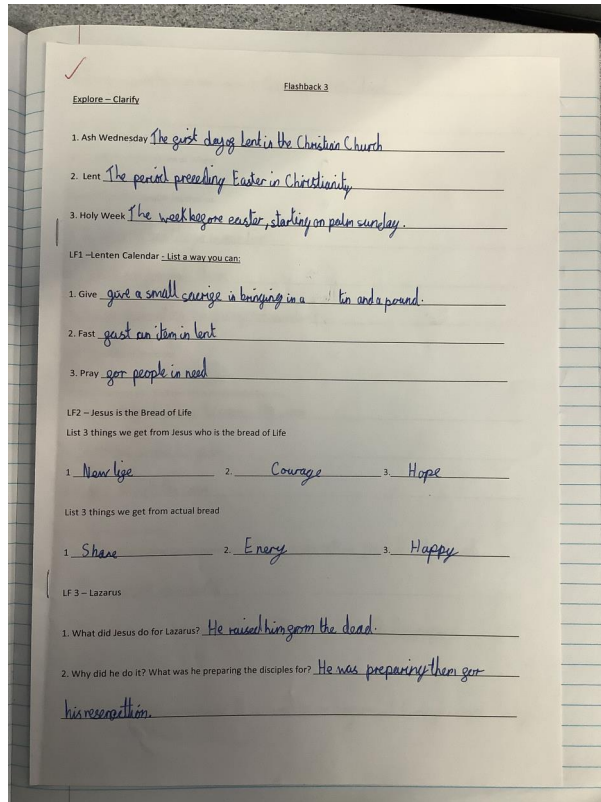 Flashback 3
Explore – Clarify
1. Ash Wednesday The first day of lent in the Christian Church
2. Lent The period preceding Easter in Christianity
3. Holy Week The week before easter, starting on palm sunday.
LF1 –Lenten Calendar - List a way you can:
1. Give give a small sacrife in bringing in a tin and a pound.
2. Fast fast an item in lent
3. Pray for people in need
LF2 – Jesus is the Bread of Life
List 3 things we get from Jesus who is the bread of Life
1 New life 2. Courage 3. Hope
List 3 things we get from actual bread
1 Share 2. Enery 3. Happy
LF 3 – Lazarus
1. What did Jesus do for Lazarus? He raised him from the dead.
2. Why did he do it? What was he preparing the disciples for? He was preparing them for
his